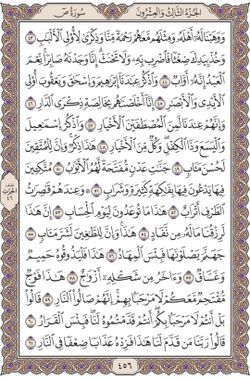 الجزء الثالث والعشرون سورة ص
وَوَهَبْنَا لَهُۥٓ أَهْلَهُۥ وَمِثْلَهُم مَّعَهُمْ رَحْمَةً مِّنَّا وَذِكْرَىٰ لِأُو۟لِى ٱلْأَلْبَـٰبِ ٤٣
وَخُذْ بِيَدِكَ ضِغْثًا فَٱضْرِب بِّهِۦ وَلَا تَحْنَثْ إِنَّا وَجَدْنَـٰهُ صَابِرًا نِّعْمَ
ٱلْعَبْدُ إِنَّهُۥٓ أَوَّابٌ ٤٤ وَٱذْكُرْ عِبَـٰدَنَآ إِبْرَٰهِيمَ وَإِسْحَـٰقَ وَيَعْقُوبَ أُو۟لِى
ٱلْأَيْدِى وَٱلْأَبْصَـٰرِ ٤٥ إِنَّآ أَخْلَصْنَـٰهُم بِخَالِصَةٍ ذِكْرَى ٱلدَّارِ ٤٦
وَإِنَّهُمْ عِندَنَا لَمِنَ ٱلْمُصْطَفَيْنَ ٱلْأَخْيَارِ ٤٧ وَٱذْكُرْ إِسْمَـٰعِيلَ
وَٱلْيَسَعَ وَذَا ٱلْكِفْلِ وَكُلٌّ مِّنَ ٱلْأَخْيَارِ ٤٨ هَـٰذَا ذِكْرٌ وَإِنَّ لِلْمُتَّقِينَ
لَحُسْنَ مَـَٔابٍ ٤٩ جَنَّـٰتِ عَدْنٍ مُّفَتَّحَةً لَّهُمُ ٱلْأَبْوَٰبُ ٥٠ مُتَّكِـِٔينَ
فِيهَا يَدْعُونَ فِيهَا بِفَـٰكِهَةٍ كَثِيرَةٍ وَشَرَابٍ ٥١ وَعِندَهُمْ قَـٰصِرَٰتُ
ٱلطَّرْفِ أَتْرَابٌ ٥٢ هَـٰذَا مَا تُوعَدُونَ لِيَوْمِ ٱلْحِسَابِ ٥٣ إِنَّ هَـٰذَا
لَرِزْقُنَا مَا لَهُۥ مِن نَّفَادٍ ٥٤ هَـٰذَا وَإِنَّ لِلطَّـٰغِينَ لَشَرَّ مَـَٔابٍ ٥٥
جَهَنَّمَ يَصْلَوْنَهَا فَبِئْسَ ٱلْمِهَادُ ٥٦ هَـٰذَا فَلْيَذُوقُوهُ حَمِيمٌ
وَغَسَّاقٌ ٥٧ وَءَاخَرُ مِن شَكْلِهِۦٓ أَزْوَٰجٌ ٥٨ هَـٰذَا فَوْجٌ
مُّقْتَحِمٌ مَّعَكُمْ لَا مَرْحَبًۢا بِهِمْ إِنَّهُمْ صَالُوا۟ ٱلنَّارِ ٥٩ قَالُوا۟
بَلْ أَنتُمْ لَا مَرْحَبًۢا بِكُمْ أَنتُمْ قَدَّمْتُمُوهُ لَنَا فَبِئْسَ ٱلْقَرَارُ ٦٠
قَالُوا۟ رَبَّنَا مَن قَدَّمَ لَنَا هَـٰذَا فَزِدْهُ عَذَابًا ضِعْفًا فِى ٱلنَّارِ ٦١
٤٥٦